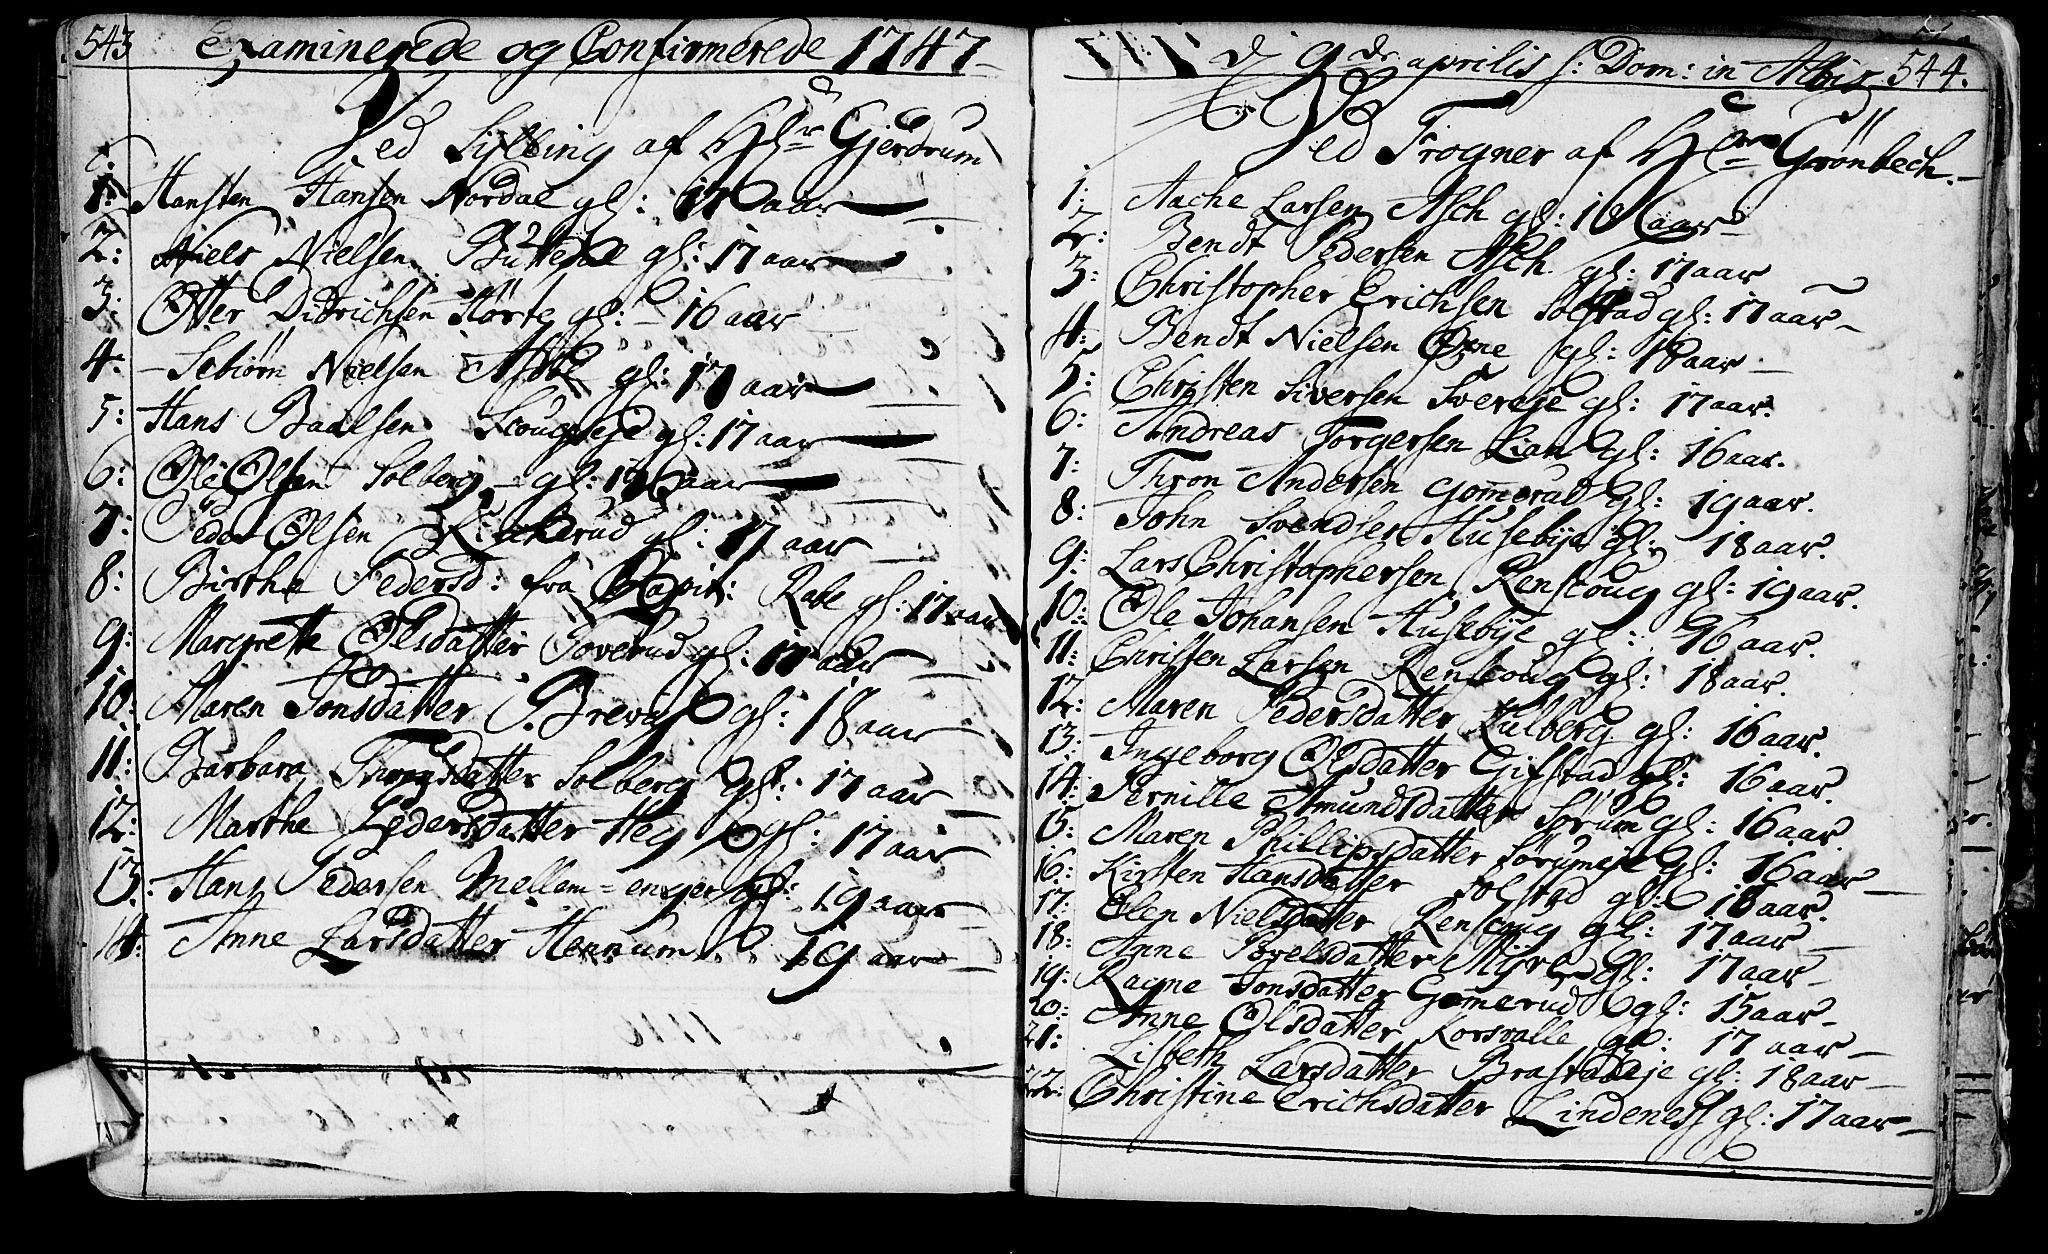 543 Examinerede og Confirmerede 1747
Ved Sylling af Hr Gjerdrum
1: Hansten Hansen Nordal gl: 17 aar
2: Niels Nielsen gl: 17 aar
3: Otter Didrichsen Hørte gl: 16 aar
4: Sebiørn Nielsen gl: 17 aar
5: Hans Baalsen Scougseje gl: 17 aar
6: Ole Olsen Solberg gl: 19 aar
7: Peder Olsen Kirkerud gl: 17 aar
8: Birthe Pedersd: fra Capit: Rabe gl: 17 aar
9: Margrette Olsdatter Toverud gl: 17 aar
10: Maren Jonsdatter gl: 18 aar
11: Barbara Thronsdatter Solberg gl: 17 aar
12: Marthe Pedersdatter Heg gl: 17 aar
13: Hans Pedersen Mellem=enger gl: 19 aar
14: Anne Larsdatter Hennum 19 aar
d 9de aprilis s: Dom: in Albis 544.
Ved Frogner af Hr Grönbech.
1: Aache Larsen Asch gl: aar
2: Bendt Pedersen Asch gl: 17 aar
3: Christopher Erichsen Solstad gl: 17 aar
4: Bendt Nielsen gl: 18 aar
5: Christen Siversen gl: 17 aar.
6: Andreas Torgersen Lian gl: 16 aar.
7: Thron Andersen Gomerud gl: 19 aar.
8: John Svendsen Husebye gl: 18 aar.
9: Lars Christophersen Renscoug gl: 19 aar.
10: Ole Johansen Husebye gl: 16 aar.
11: Christen Larsen Renscoug gl: 18 aar.
12: Maren Pedersdatter gl: 16 aar.
13: Ingeborg Olsdatter Gifstad gl: 16 aar.
14: Pernille Amundsdatter Sørum gl: 16 aar.
15: Maren Phillipsdatter Sørumeje gl: 16 aar
16: Kirsten Hansdatter Solstad gl: 18 aar.
17: Elen Nielsdatter Renscoug gl: 17 aar
18: Anne Povelsdatter gl: 17 aar
19: Ragne Jonsdatter Gomerud gl: 15 aar
20: Anne Olsdatter Korsvalle gl: 17 aar
21: Lisbeth Larsdatter Brastadeje gl: 18 aar
22: Christine Erichsdatter Lindeness gl: 17 aar